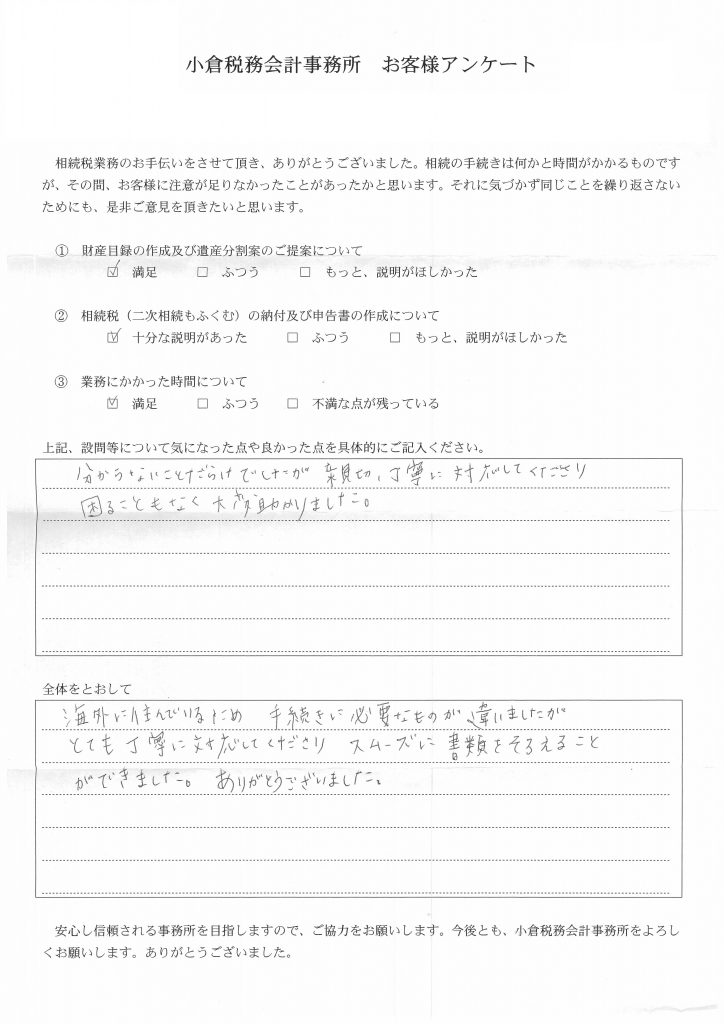 小倉税務会計事務所　お客様アンケート
相続税業務のお手伝いをさせて頂き、ありがとうございました。相続の手続きは何かと時間がかかるものです
が、その間、お客様に注意が足りなかったことがあったかと思います。それに気づかず同じことを繰り返さない
ためにも、是非ご意見を頂きたいと思います。
①　財産目録の作成及び遺産分割案のご提案について
☑　満足　　☐　ふつう　　☐　もっと、説明がほしかった
②　相続税（二次相続もふくむ）の納付及び申告書の作成について
☑　十分な説明があった　　☐　ふつう　　☐　もっと、説明がほしかった
③　業務にかかった時間について
☑　満足　　☐　ふつう　　☐　不満な点が残っている
上記、設問等について気になった点や良かった点を具体的にご記入ください。
分からないことだらけでしたが　親切、丁寧に対応してくださり
困ることもなく　大変助かりました。
全体をとおして
海外に住んでいるため　手続きに必要なものが違いましたが
とても丁寧に対応してくださり　スムーズに書類をそろえること
ができました。　ありがとうございました。
安心し信頼される事務所を目指しますので、ご協力をお願いします。今後とも、小倉税務会計事務所をよろし
くお願いします。ありがとうございました。